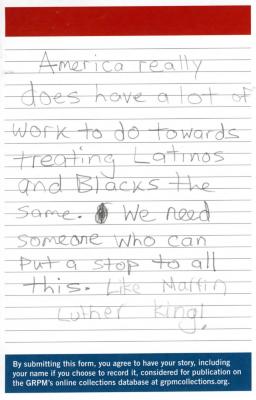 America really
does have a lot of
work to do towards
treating Latinos
and Blacks the
same. We need
someone who can
put a stop to all
this. Like Martin
Luther King!
By submitting this form, you agree to have your story, including
your name if you choose to record it, considered for publication on
the GRPM's online collections database at grpmcollections.org.